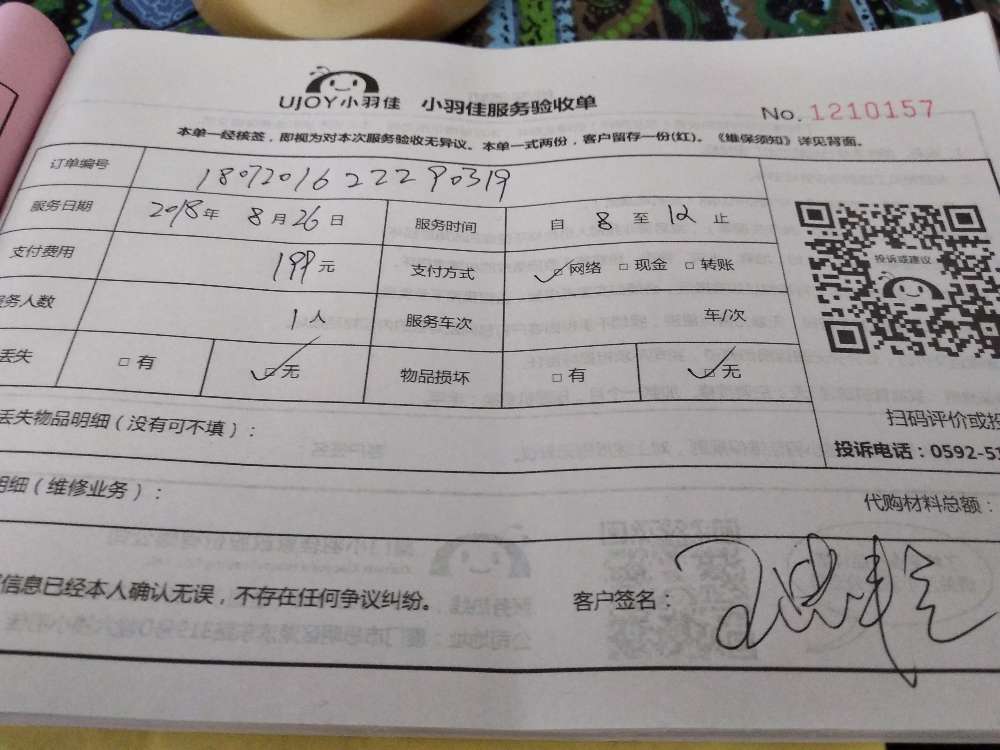 UJOY小羽佳 小羽佳服务验收单
No. 1210157
本单一经核签，即视为对本次服务验收无异议。本单一式两份，客户留存一份(红)。《维保须知》详见背面。
订单编号 1807201622290319
服务日期 2018年 8月26日 服务时间 自 8 至 12 止
支付费用 199元 支付方式 网络 现金 转账
务人数 1人 服务车次 车/次
丢失 有 无 物品损坏 有 无
投诉或建议
扫码评价或投
投诉电话：0592-51
丢失物品明细（没有可不填）：
明细（维修业务）：
代购材料总额：
信息已经本人确认无误，不存在任何争议纠纷。 客户签名：